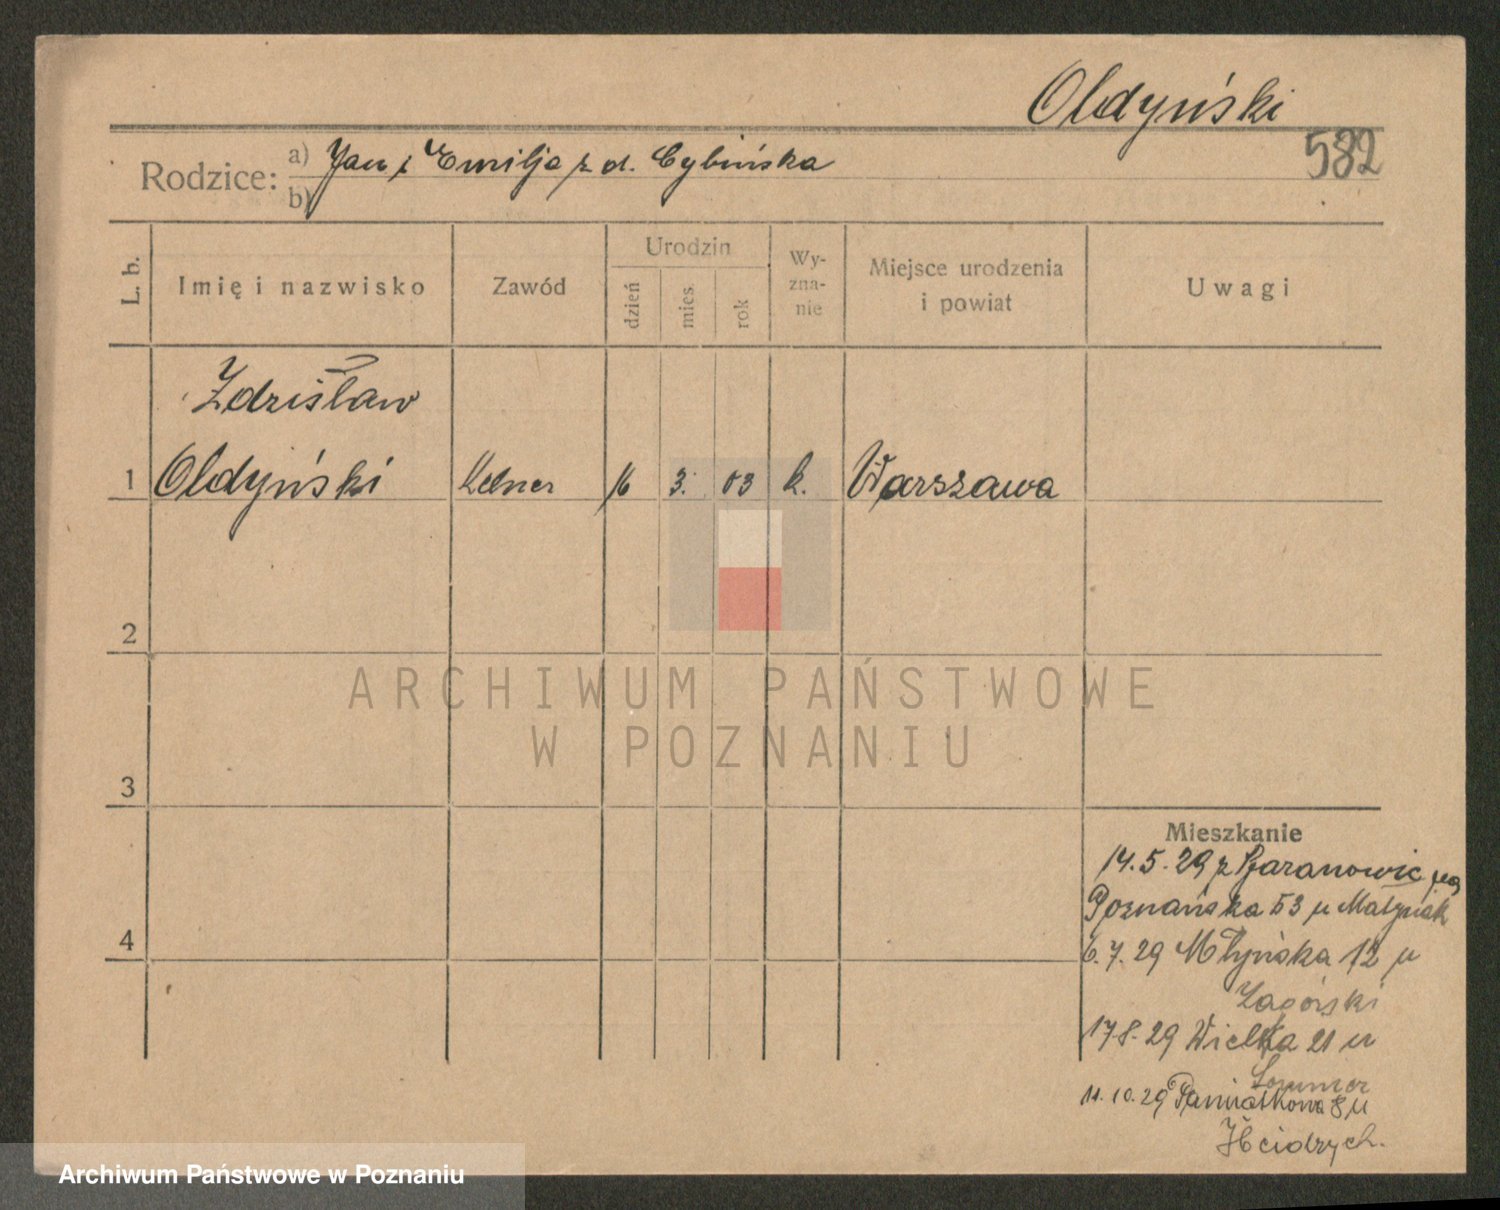 Oldyński
582
Rodzice: a) Jan i Emilja z d. Cybińska
b)
L. b.
Imię i nazwisko
Zawód
Urodzin
dzień
mies.
rok
Wy-
zna-
nie
Miejsce urodzenia
i powiat
Uwagi
Zdzisław
1 Oldyński Kelner 16 3. 03 k. Warszawa
2
ARCHIWUM PAŃSTWOWE
W POZNANIU
3
Mieszkanie
14.5.29 z Baranowic
Poznańska 53 u Matysiak
4
6.7.29 Młyńska 12 u
Zagórski
17 8. 29 Wielka 21 u
Sommer
11.10.29 Pamiątkowa 8 u
Archiwum Państwowe w Poznaniu